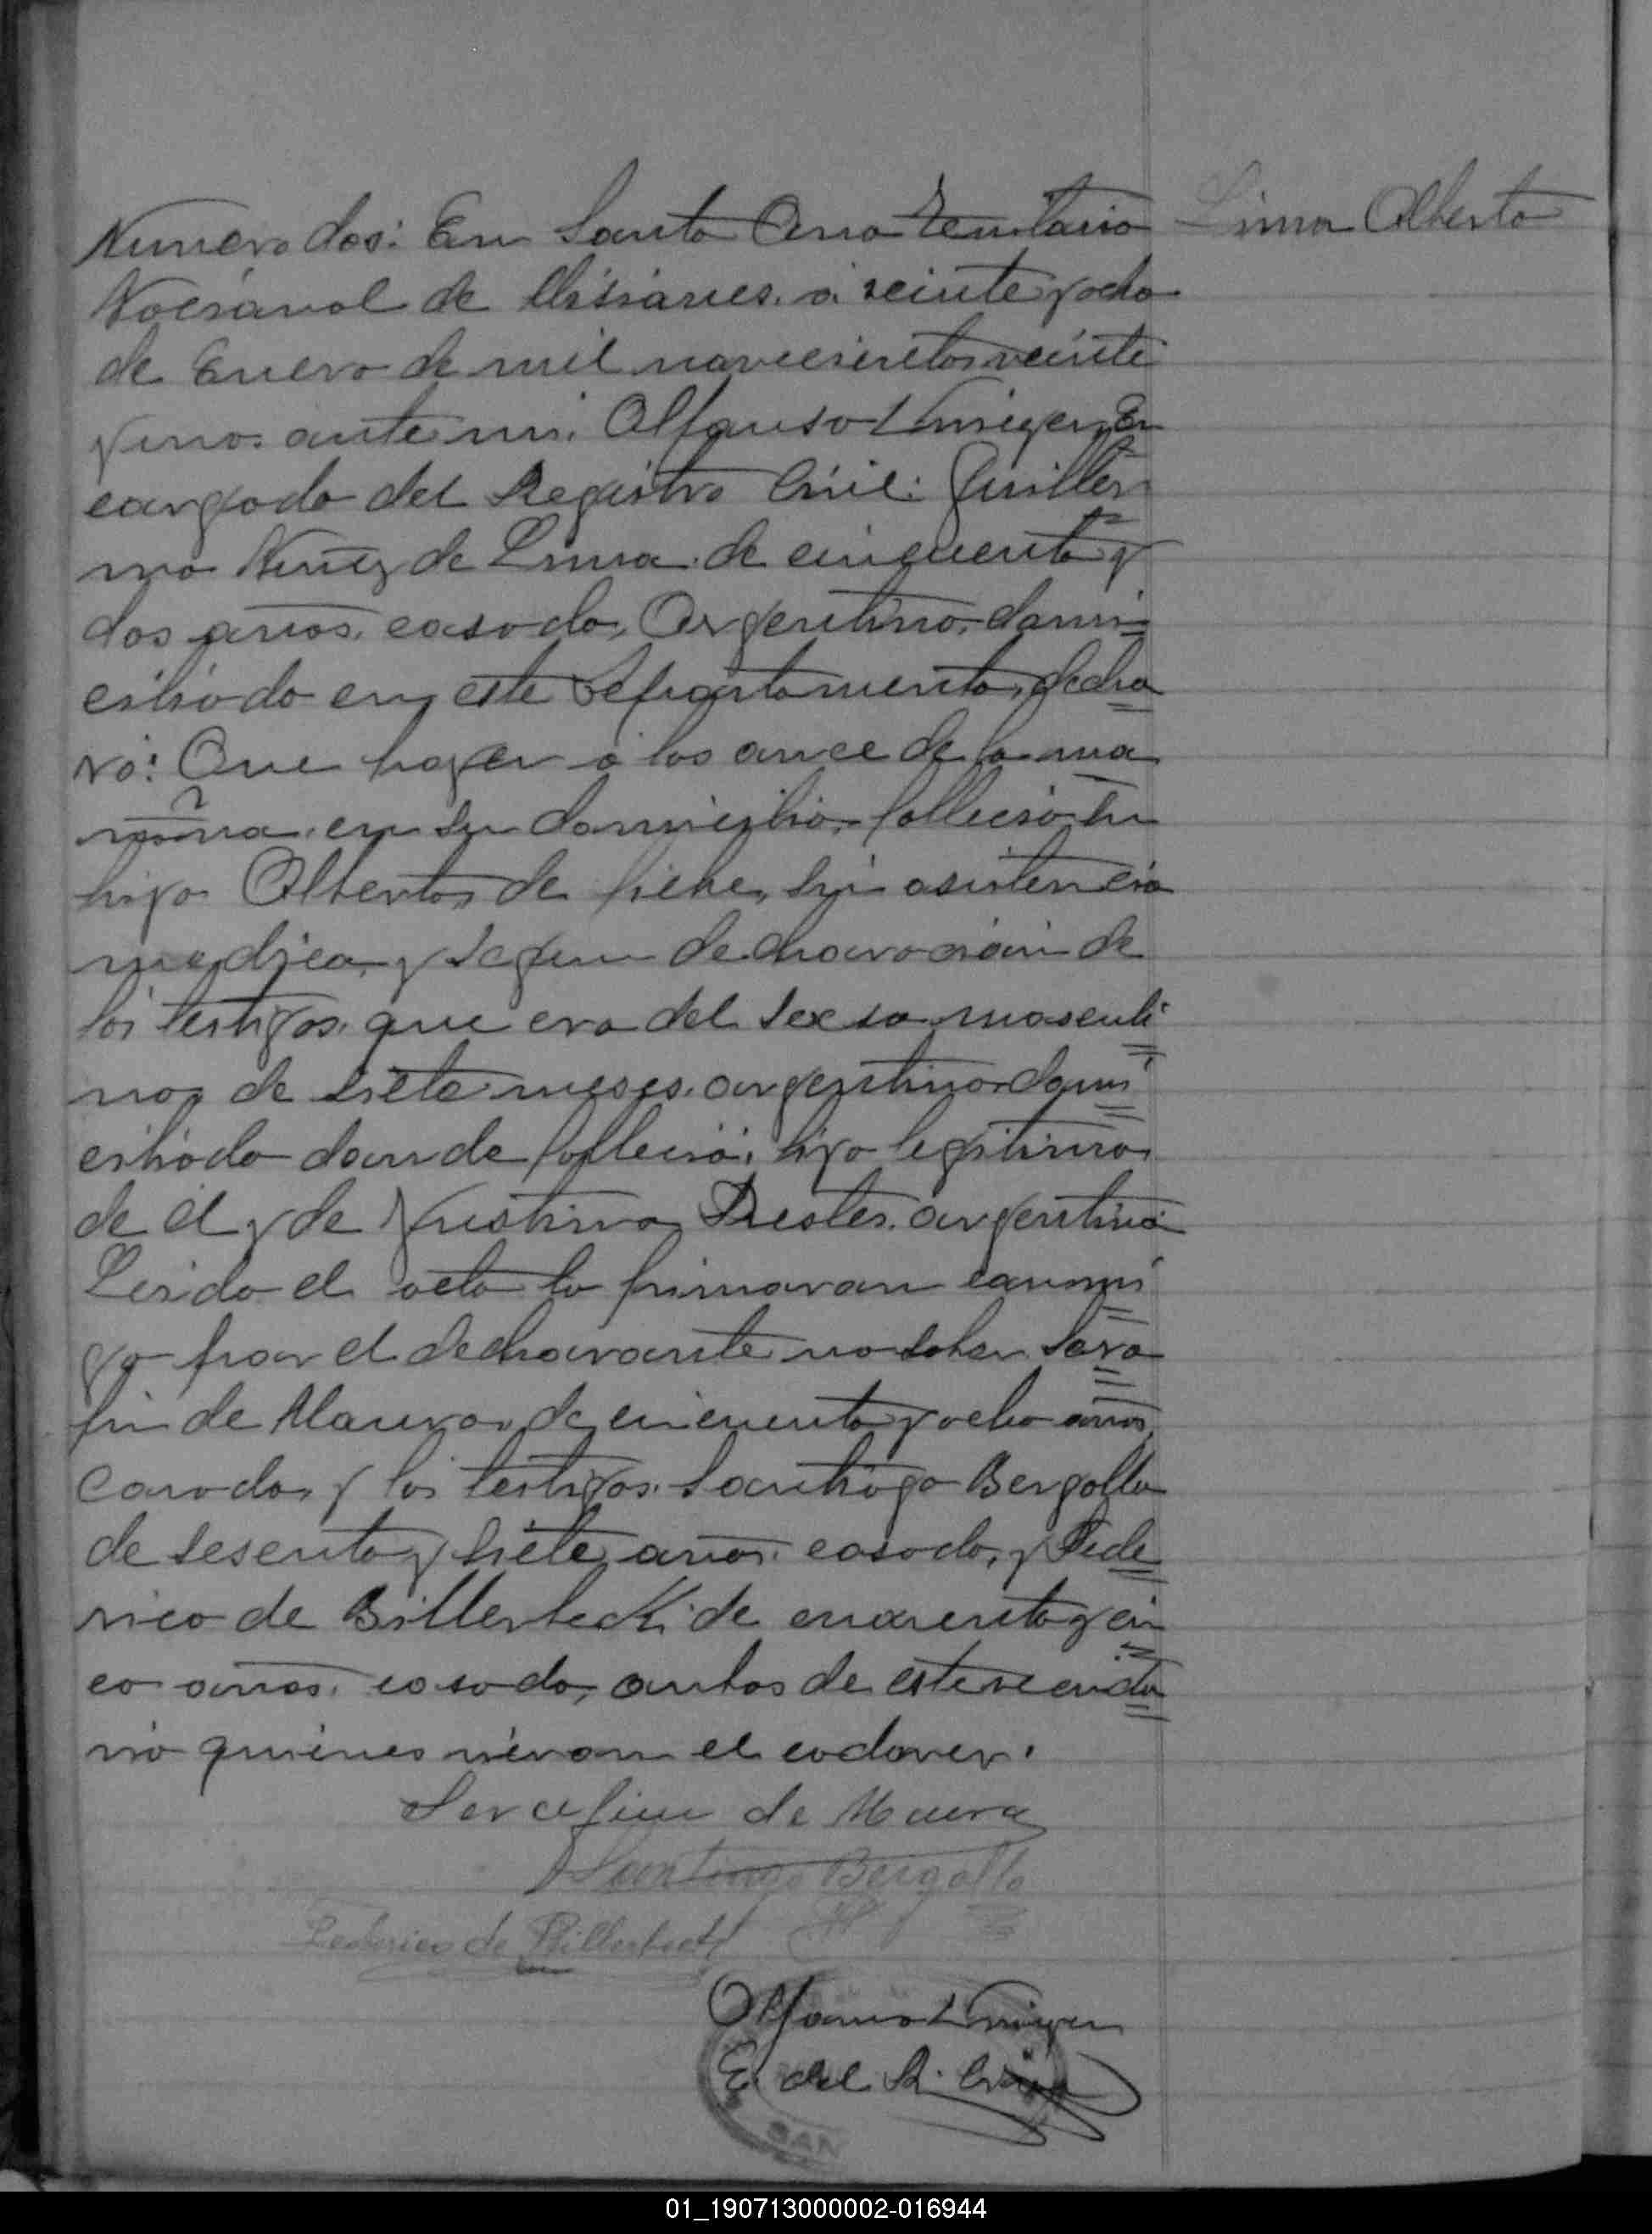 Numero dos: En Santa Ana Territorio
Lima Alberto
Nacional de Misiones. a veinte y ocho
de Enero de mil novecientos veinte
y uno. ante mi. Alfonso En
cargado del Registro Civil: Guiller
mo Nuñez de Lima. de cincuenta y
dos años. casado, Argentino, domi
ciliado en este Departamento, decla
ró: Que hayer a las once de la ma
ñana. en su domicilio, fallecio su
hijo Alberto, de fiebre, sin asistencia
medica, y segun declaracion de
los testigos. que era del sexso masculi
no, de siete meses. argentino domi
ciliado donde fallecio, hijo legitimo
de el y de Justina Prestes. argentina
Leido el acta la firmaron conmi
go por el declarante no saber Sera
fin de Maura, de cincuenta y ocho años,
casado, y los testigos. Santiago Bergallo
de sesenta y siete años. casado, y Fede
rico de Billerbeck. de cuarenta y cin
co años. casado, anbos de este vecinda
rio quienes vieron el cadaver.
Serafim de Maura
Santiago Bergallo
Federico de Billerbeck
Alfonso
E. del R. Civil
SAN
01_190713000002-016944